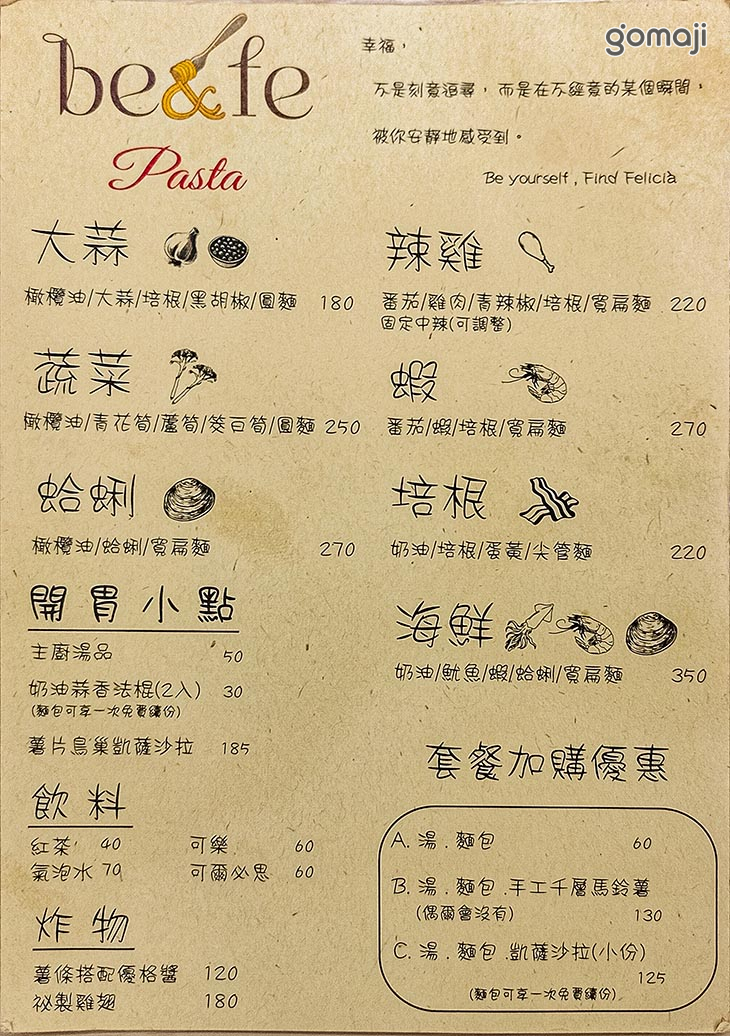 be&fe
Pasta
gomaji
幸福，
不是刻意追尋，而是在不經意的某個瞬間，
被你安靜地感受到。
Be yourself , Find Felicià
大蒜
橄欖油/大蒜/培根/黑胡椒/圓麵 180
蔬菜
橄欖油/青花筍/蘆筍/筊白筍/圓麵 250
蛤蜊
橄欖油/蛤蜊/寬扁麵 270
開胃小點
主廚湯品 50
奶油蒜香法棍(2入) 30
(麵包可享一次免費續份)
薯片鳥巢凱薩沙拉 185
飲料
紅茶 40 可樂 60
氣泡水 70 可爾必思 60
炸物
薯條搭配優格醬 120
祕製雞翅 180
辣雞
番茄/雞肉/青辣椒/培根/寬扁麵 220
固定中辣(可調整)
蝦
番茄/蝦/培根/寬扁麵 270
培根
奶油/培根/蛋黃/尖管麵 220
海鮮
奶油/魷魚/蝦/蛤蜊/寬扁麵 350
套餐加購優惠
A. 湯 . 麵包 60
B. 湯 . 麵包 .手工千層馬鈴薯
(偶爾會沒有) 130
C. 湯 . 麵包 .凱薩沙拉(小份)
125
(麵包可享一次免費續份)